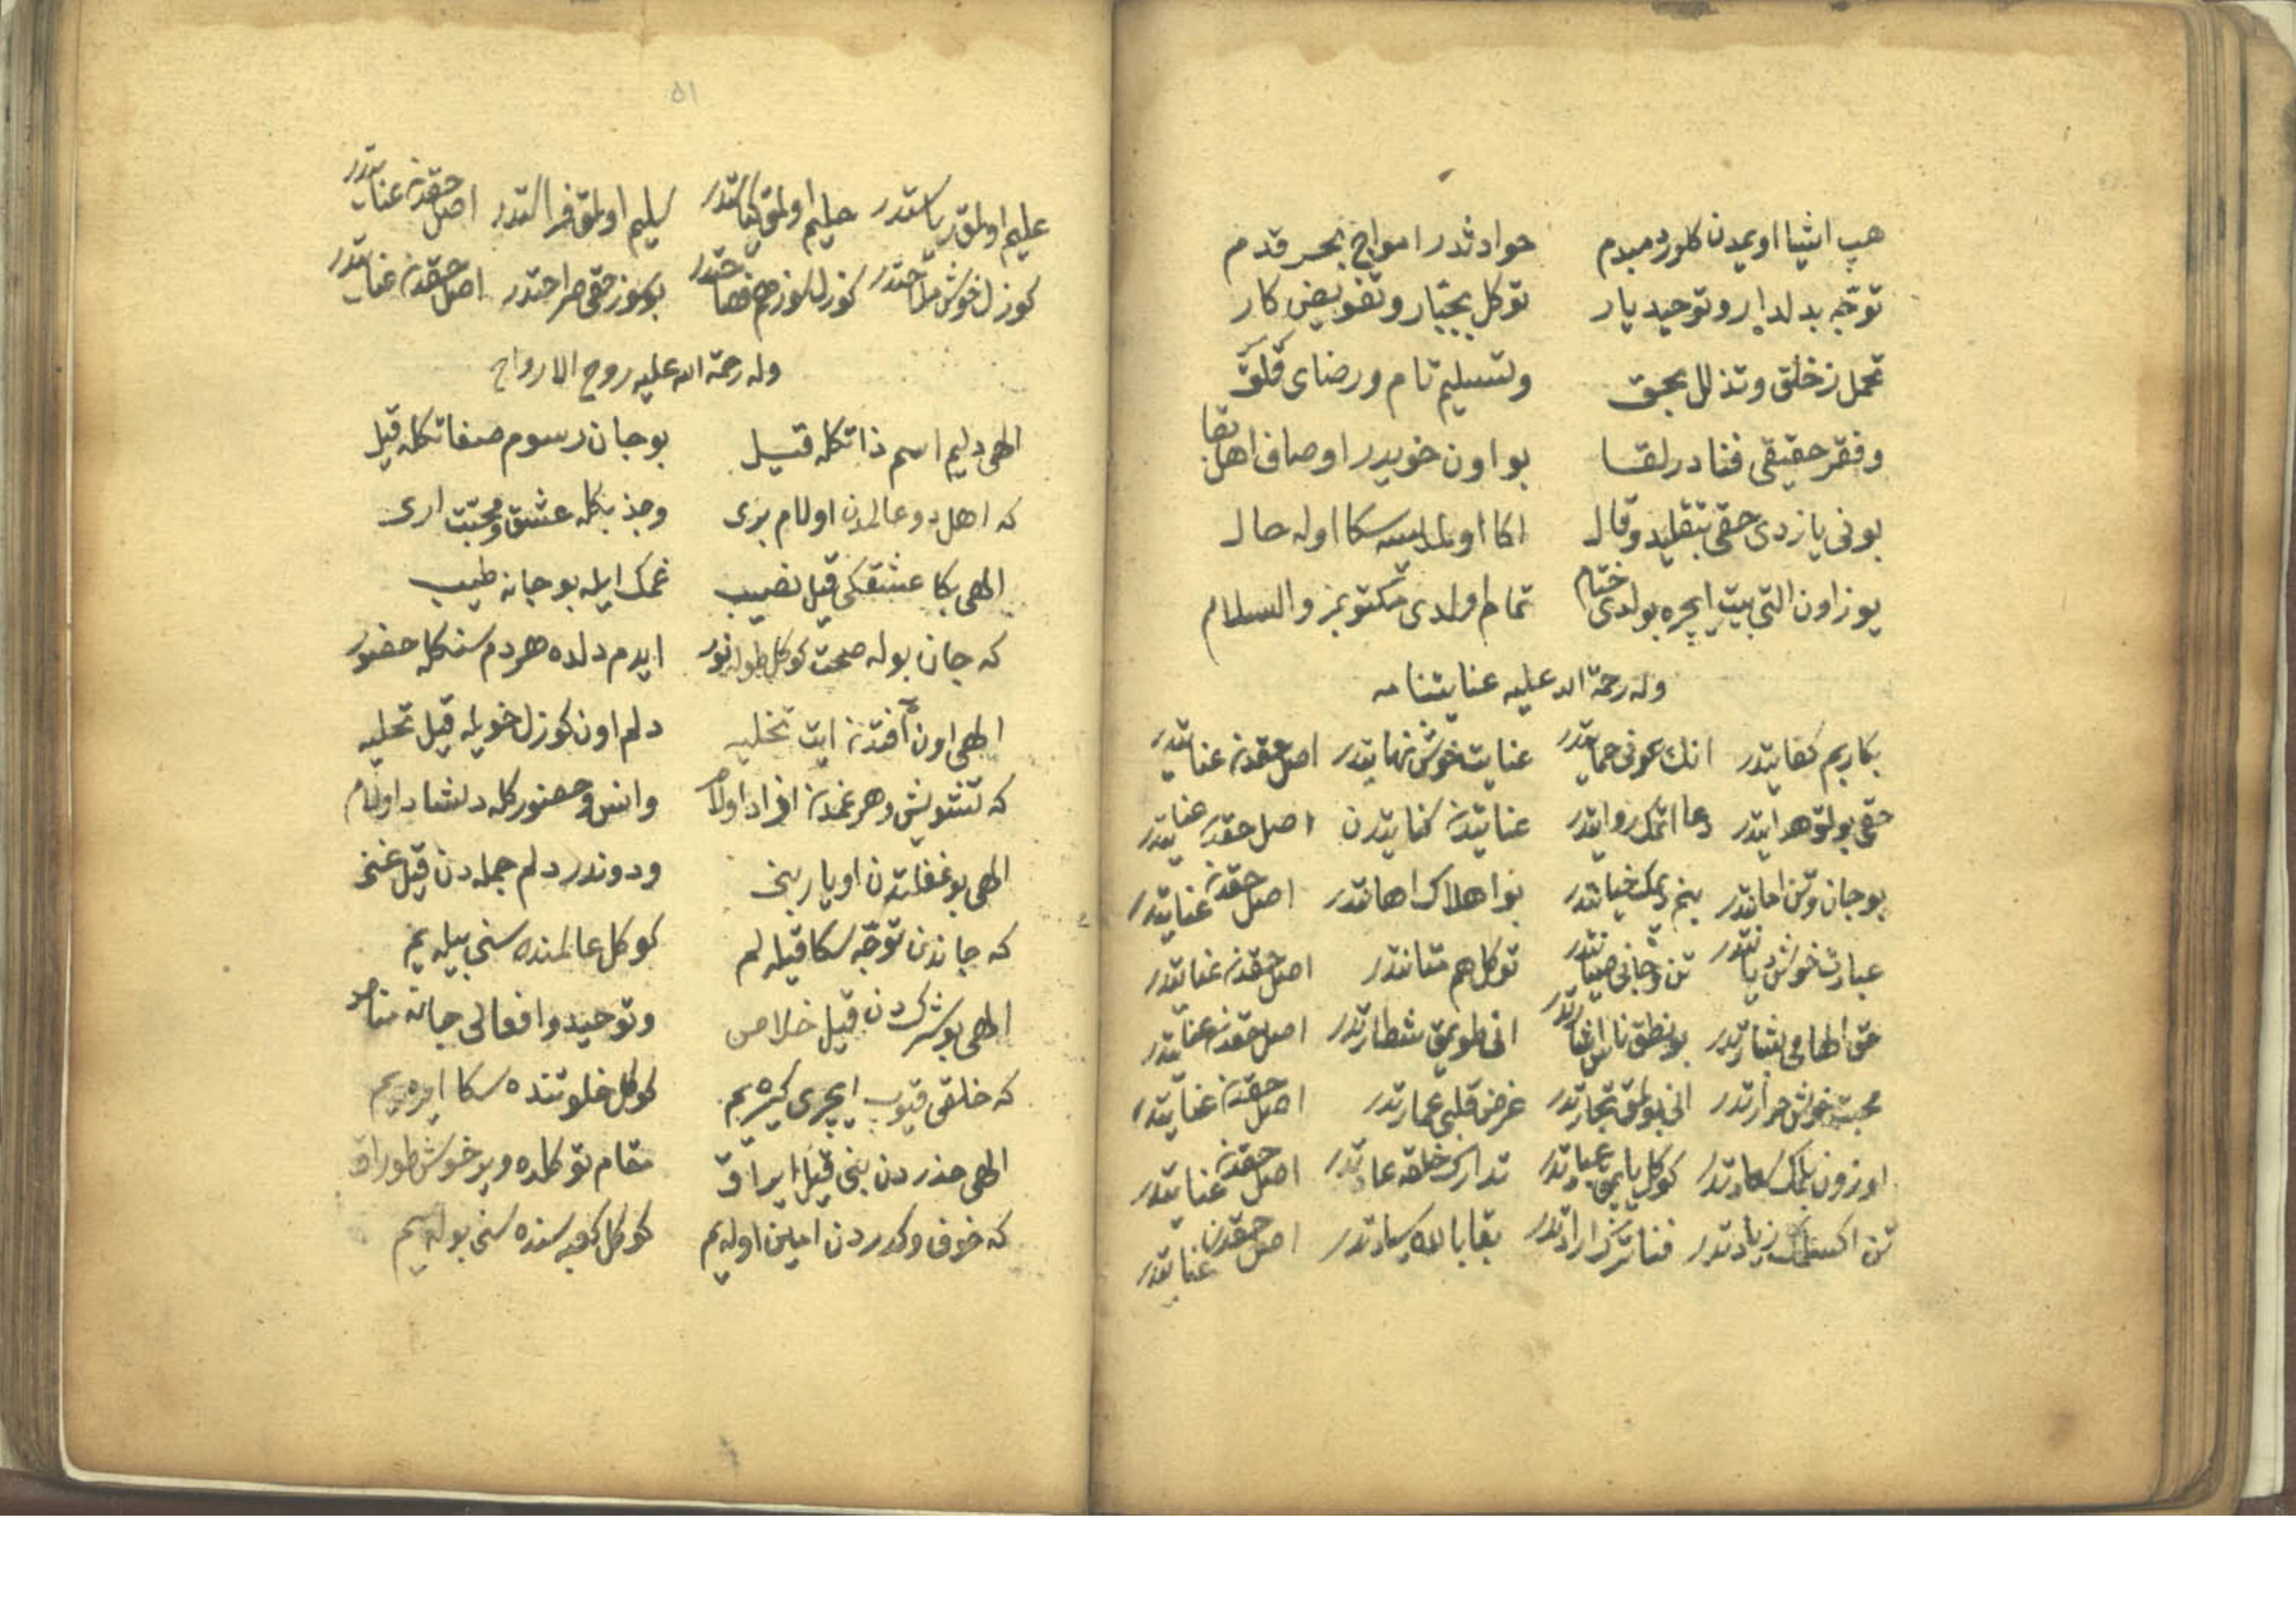 هپ اشیا اویمدن کلور دمبدم حوادثدر امواج بحر قدم
توجه بدلدار و توحید یار توکل بجبار و تفویض کار
تحمل ز خلق و تذلل بحق و تسلیم تام و رضای قلق
و فقر حقیقی فنا در لقا بو اون خویدر اوصاف اهل بقا
بونی یازدی حقی بتقلید و قال اکا اولمدیسه سکا اوله حال
یوز اون التی بیت ایچره بولدی ختام تمام اولدی مکتوبمز والسلام
وله رحمة الله علیه عنایتنامه
بکا ربم کفایتدر انك عونی حمایتدر عنایت خوش نهایتدر اصل حقدن عنایتدر
حقی بولمق هدایتدر دعا اتمك روایتدر عنایتدن کنایتدن اصل حقدن عنایتدر
بو جان و تن امانتدر بنم دیمك خیانتدر بو اهلاك اهانتدر اصل حقدن عنایتدر
عبارت خوش دیانتدر تن و جانی صیانتدر توکل هم متانتدر اصل حقدن عنایتدر
حق الهامی بشارتدر بو نطق ناس اشارتدر انی طویمق شطارتدر اصل حقدن عنایتدر
محبت خوش حرارتدر انی بولمق تجارتدر غرض قلبی عمارتدر اصل حقدن عنایتدر
اوزون بلمك سعادتدر کوکل یاپمق عبادتدر تدارك خلقه عادتدر اصل حقدن عنایتدر
تن اکسلمك زیادتدر فنا ترك ارادتدر بقا بالله سیادتدر اصل حقدن عنایتدر
٥١
علیم اولمق ریاستدر حلیم اولمق کیاستدر سلیم اولمق فراستدر اصل حقدن عنایتدر
کوزل خوش ملاحتدر کوزل سوز هم فصاحتدر بو سوز حقی صراحتدر اصل حقدن عنایتدر
وله رحمة الله علیه روح الارواح
الهی دلیم اسم ذاتکله قیل بو جان رسوم صفاتکله قیل
که اهل دو عالمدن اولام بری و جذبکله عشق و محبت اری
الهی بکا عشقکی قیل نصیب غمك ایله بو جانه طبیب
که جان بوله صحت کوکل طوله نور ایدم دلده هر دم سنکله حضور
الهی اون آفتدن ایت تخلیه دلم اون کوزل خویله قیل تحلیه
که تشویش و هر غمدن ازاد اولام و انس و حضورکله دلشاد اولام
الهی بو غفلتدن اویار بنی و دوندر دلم جمله دن قیل غنی
که جاندن توجه سکا قیله لم کوکل عالمنده سنی بیله یم
الهی بو شرکدن قیل خلاص و توحید و افعالی جانه مناص
که خلقی قیوب ایچری کیره یم کوکل خلوتنده سکا ایره یم
الهی حذردن بنی قیل ایراق مقام توکلده ویر خوش طوراق
که خوف و کدردن امین اوله یم کوکل کعبه سنده سنی بوله یم